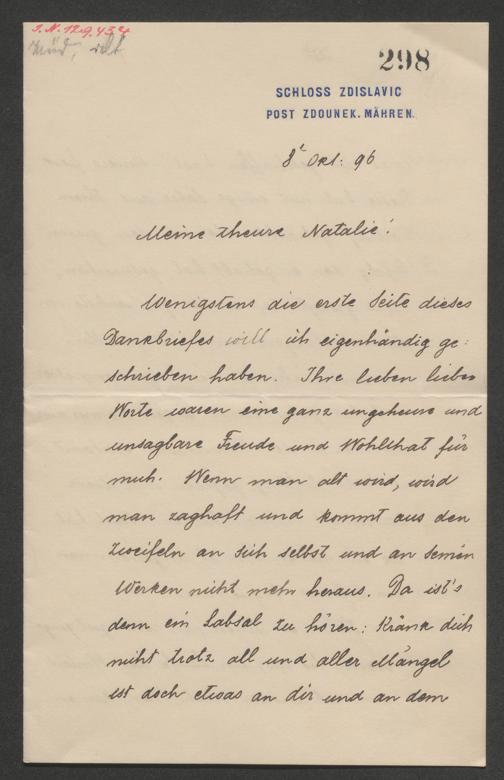 I.N. 129.434
298
SCHLOSS ZDISLAVIC
POST ZDOUNEK. MÄHREN.
8t Okt: 96
Meine theure Natalie!
Wenigstens die erste Seite dieses
Dankbriefes will ich eigenhändig ge=
schrieben haben. Ihre lieben lieben
Worte waren eine ganz ungeheure und
unsagbare Freude und Wohlthat für
mich. Wenn man alt wird, wird
man zaghaft und kommt aus den
Zweifeln an sich selbst und an seinen
Werken nicht mehr heraus. Da ist's
denn ein Labsal zu hören: Kränk dich
nicht trotz all und aller Mängel
ist doch etwas an dir und an dem